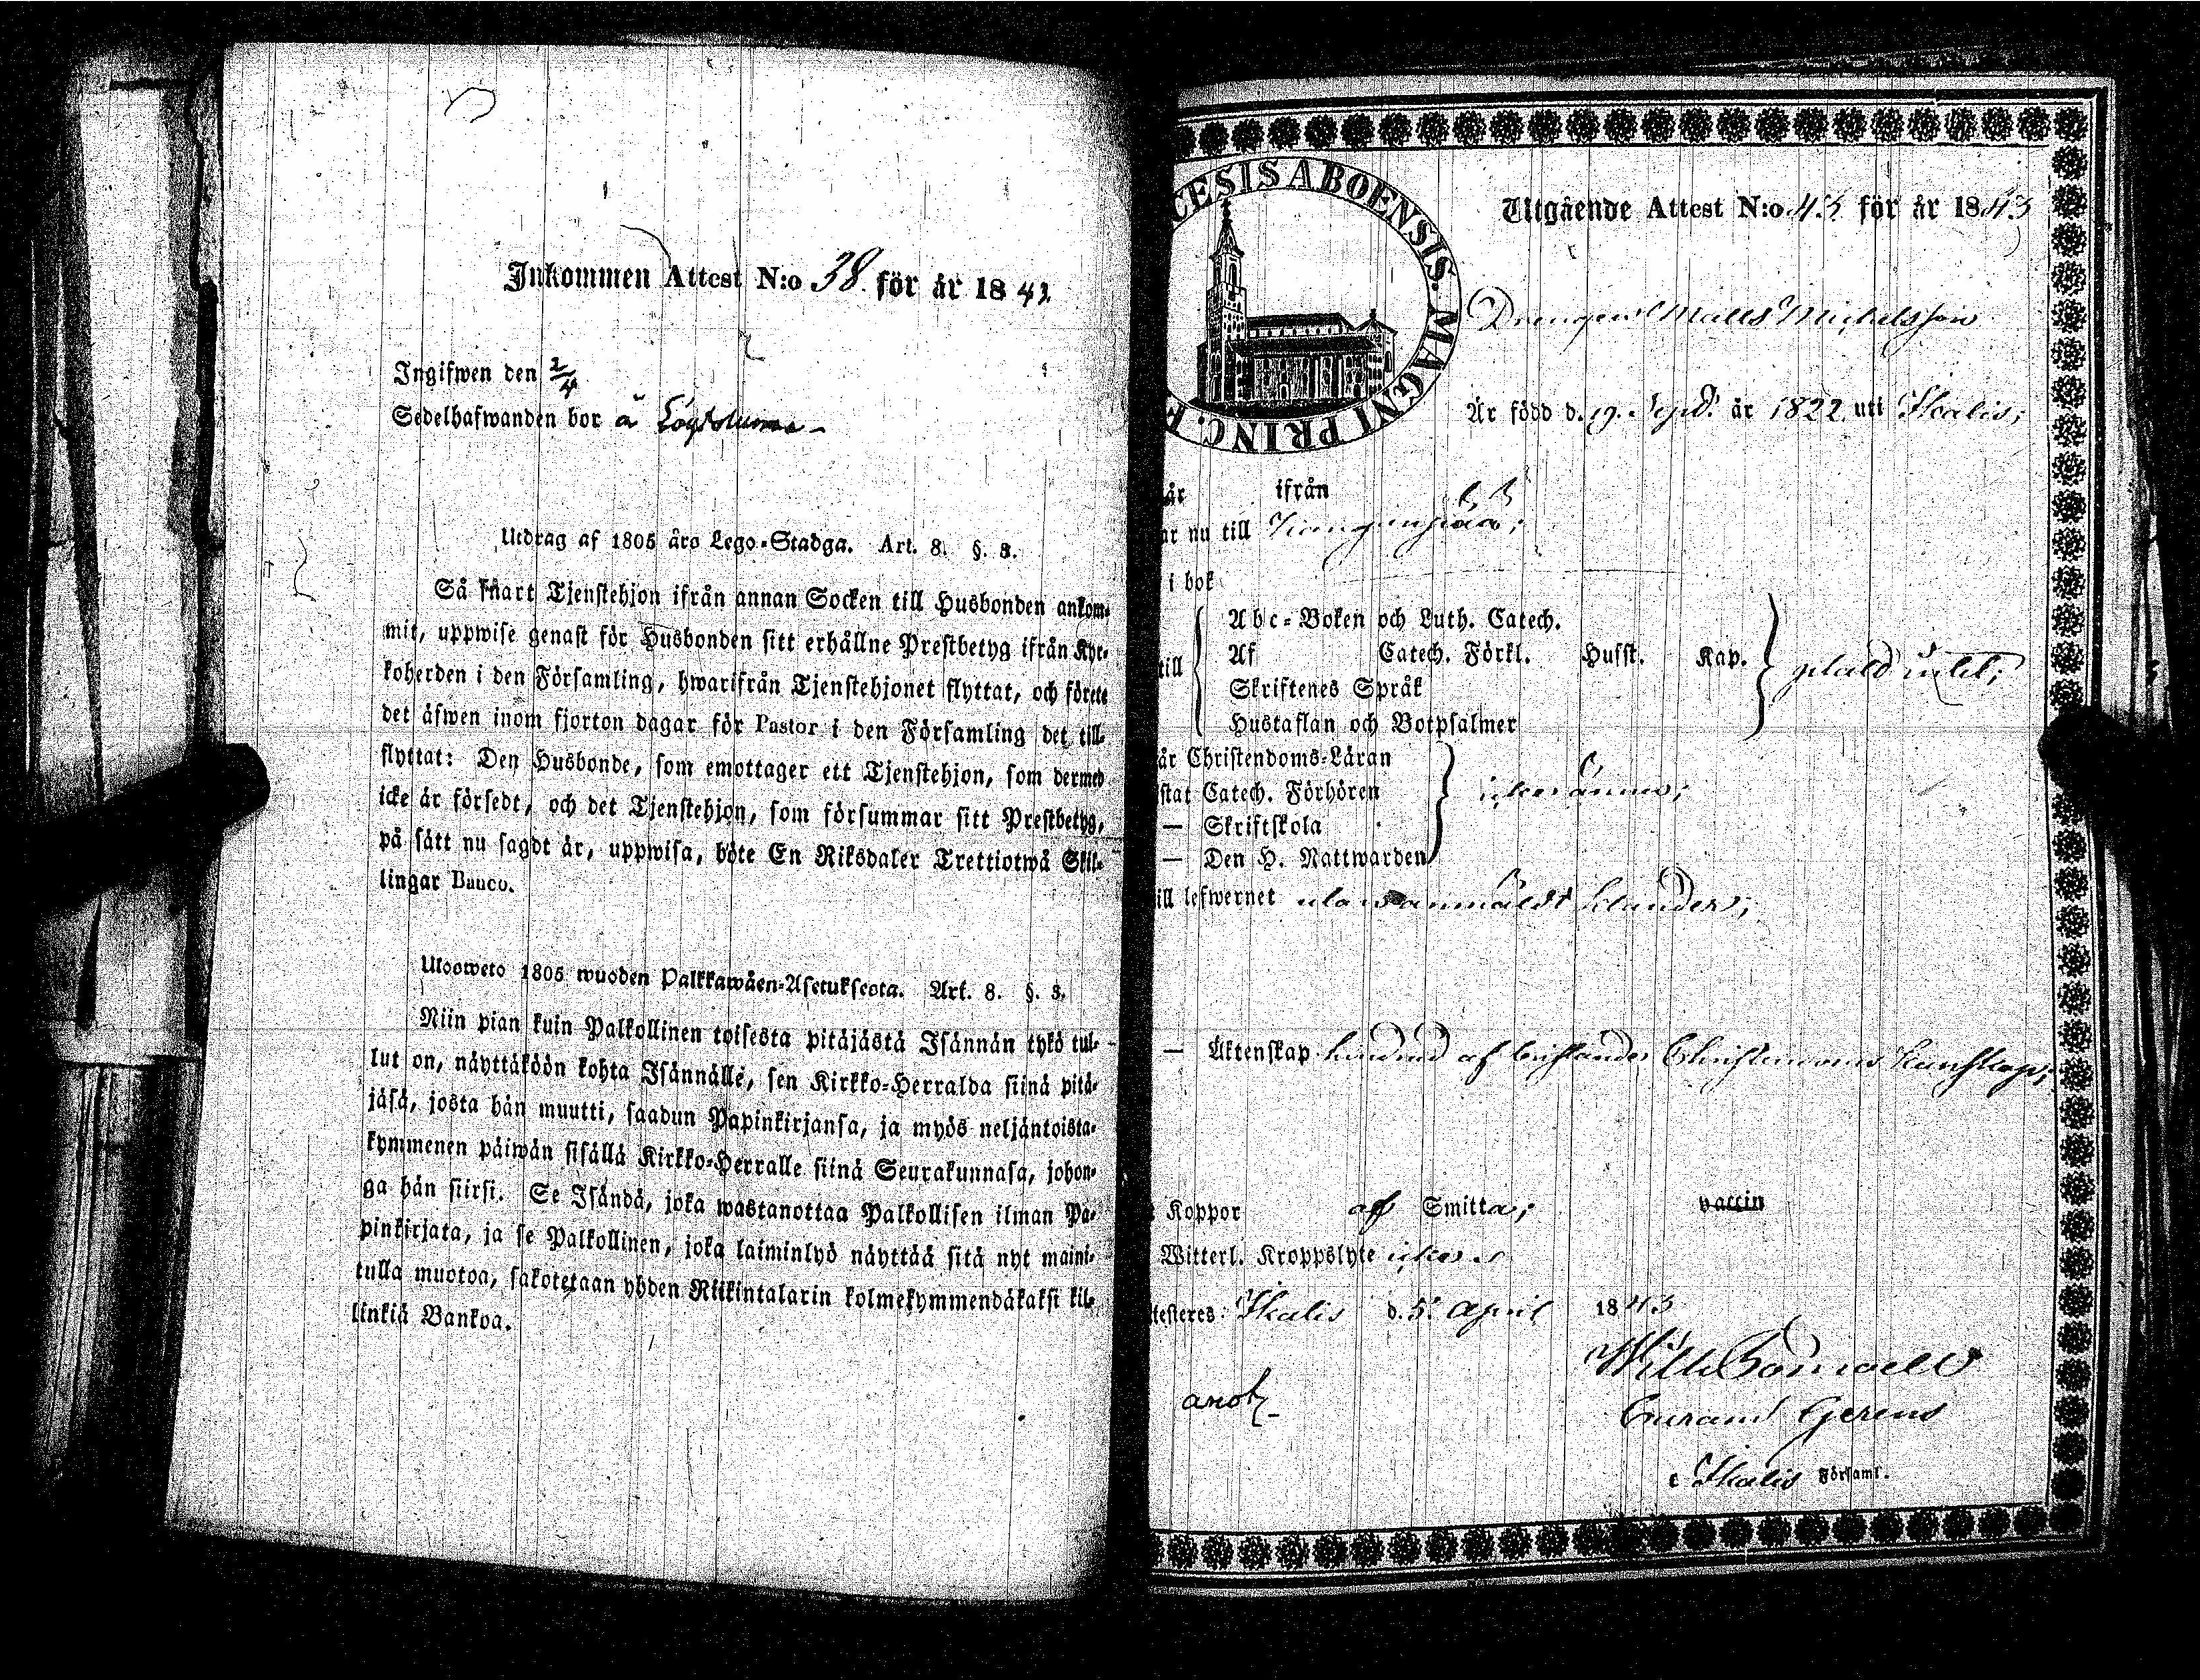 Inkommen Attest N:o 38 för år 1842
Ingifwen den 2/4
Sedelhafwanden bor å
Utdrag af 1805 års Lego-Stadga. Art. 8. §. 3.
Så snart Tjenstehjon ifrån annan Socken till Husbonden ankom-
mit, uppwise genast för Husbonden sitt erhållne Prestbetyg ifrån Kyr-
koherden i den Församling, hwarifrån Tjenstehjonet flyttat, och förete
det äfwen inom fjorton dagar för Pastor i den Församling det till-
flyttat: Den Husbonde, som emottager ett Tjenstehjon, som dermed
icke är försedt, och det Tjenstehjon, som försummar sitt Prestbetyg,
på sätt nu sagdt är, uppwisa, böte En Riksdaler Trettiotwå Skil-
lingar Banco.
Ulosweto 1805 wuoden Palkkawäen-Asetuksesta. Art. 8. §. 3.
Niin pian kuin Palkollinen toisesta pitäjästä Isännän tykö tul-
lut on, näyttäköön kohta Isännälle, sen Kirkko-Herralda siinä pitä-
jäsä, josta hän muutti, saadun Papinkirjansa, ja myös neljäntoista-
kymmenen päiwän sisällä Kirkko-Herralle siinä Seurakunnasa, johon-
ga hän siirsi. Se Isändä, joka wastanottaa Palkollisen ilman Pa-
pinkirjata, ja se Palkollinen, joka laiminlyö näyttää sitä nyt maini-
tulla muotoa, sakotetaan yhden Riikintalarin kolmekymmendäkaksi kil-
linkiä Bankoa.
CESIS ABOENSIS. MAGNI PRINC. F
Utgående Attest N:o 43 för år 1843
Drengen Matts Michelsson
Är född d. 19. Sept. år 1822 uti Ikalis;
är ifrån
ar nu till
i bok
till
Abc-Boken och Luth. Catech.
Af Catech. Förkl. Husst. Kap.
Skriftenes Språk
Hustaflan och Botpsalmer
är Christendoms-Läran
stat Catech. Förhören
— Skriftskola
— Den H. Nattwarden
ill lefwernet utan anmäldt klander;
— Äktenskap hindrad af bristande Christendoms kunskap;
Koppor af Smitta; vaccin
Witterl. Kroppslyte
ttesteres Ikalis d. 5. April 1843
Gerens
i Ikalis Församl.